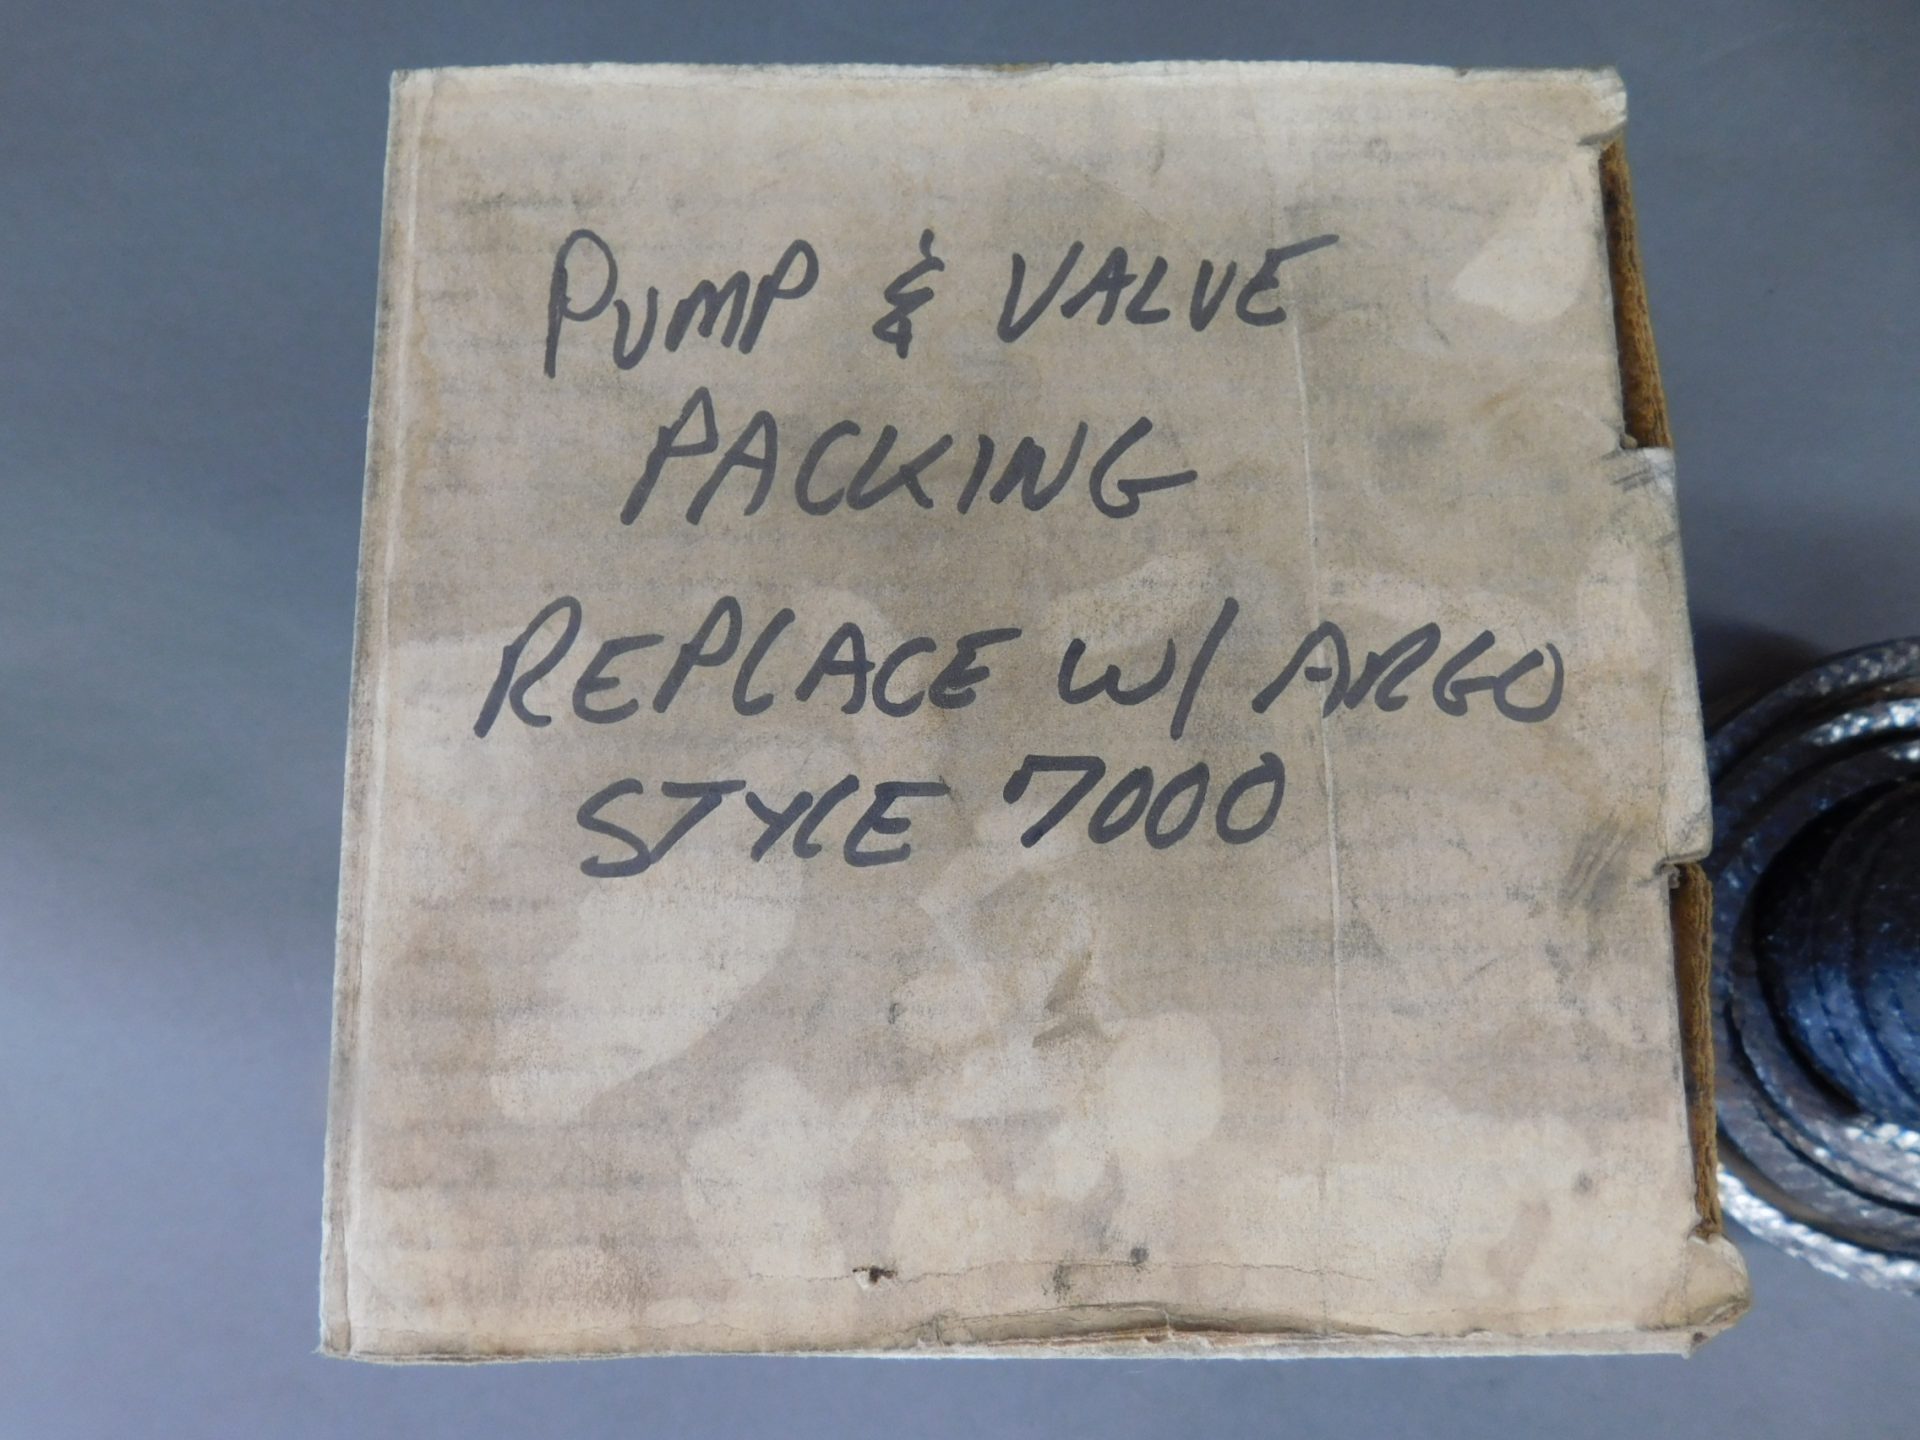 PUMP & VALVE
PACKING
REPLACE W/ ARGO
STYLE 7000